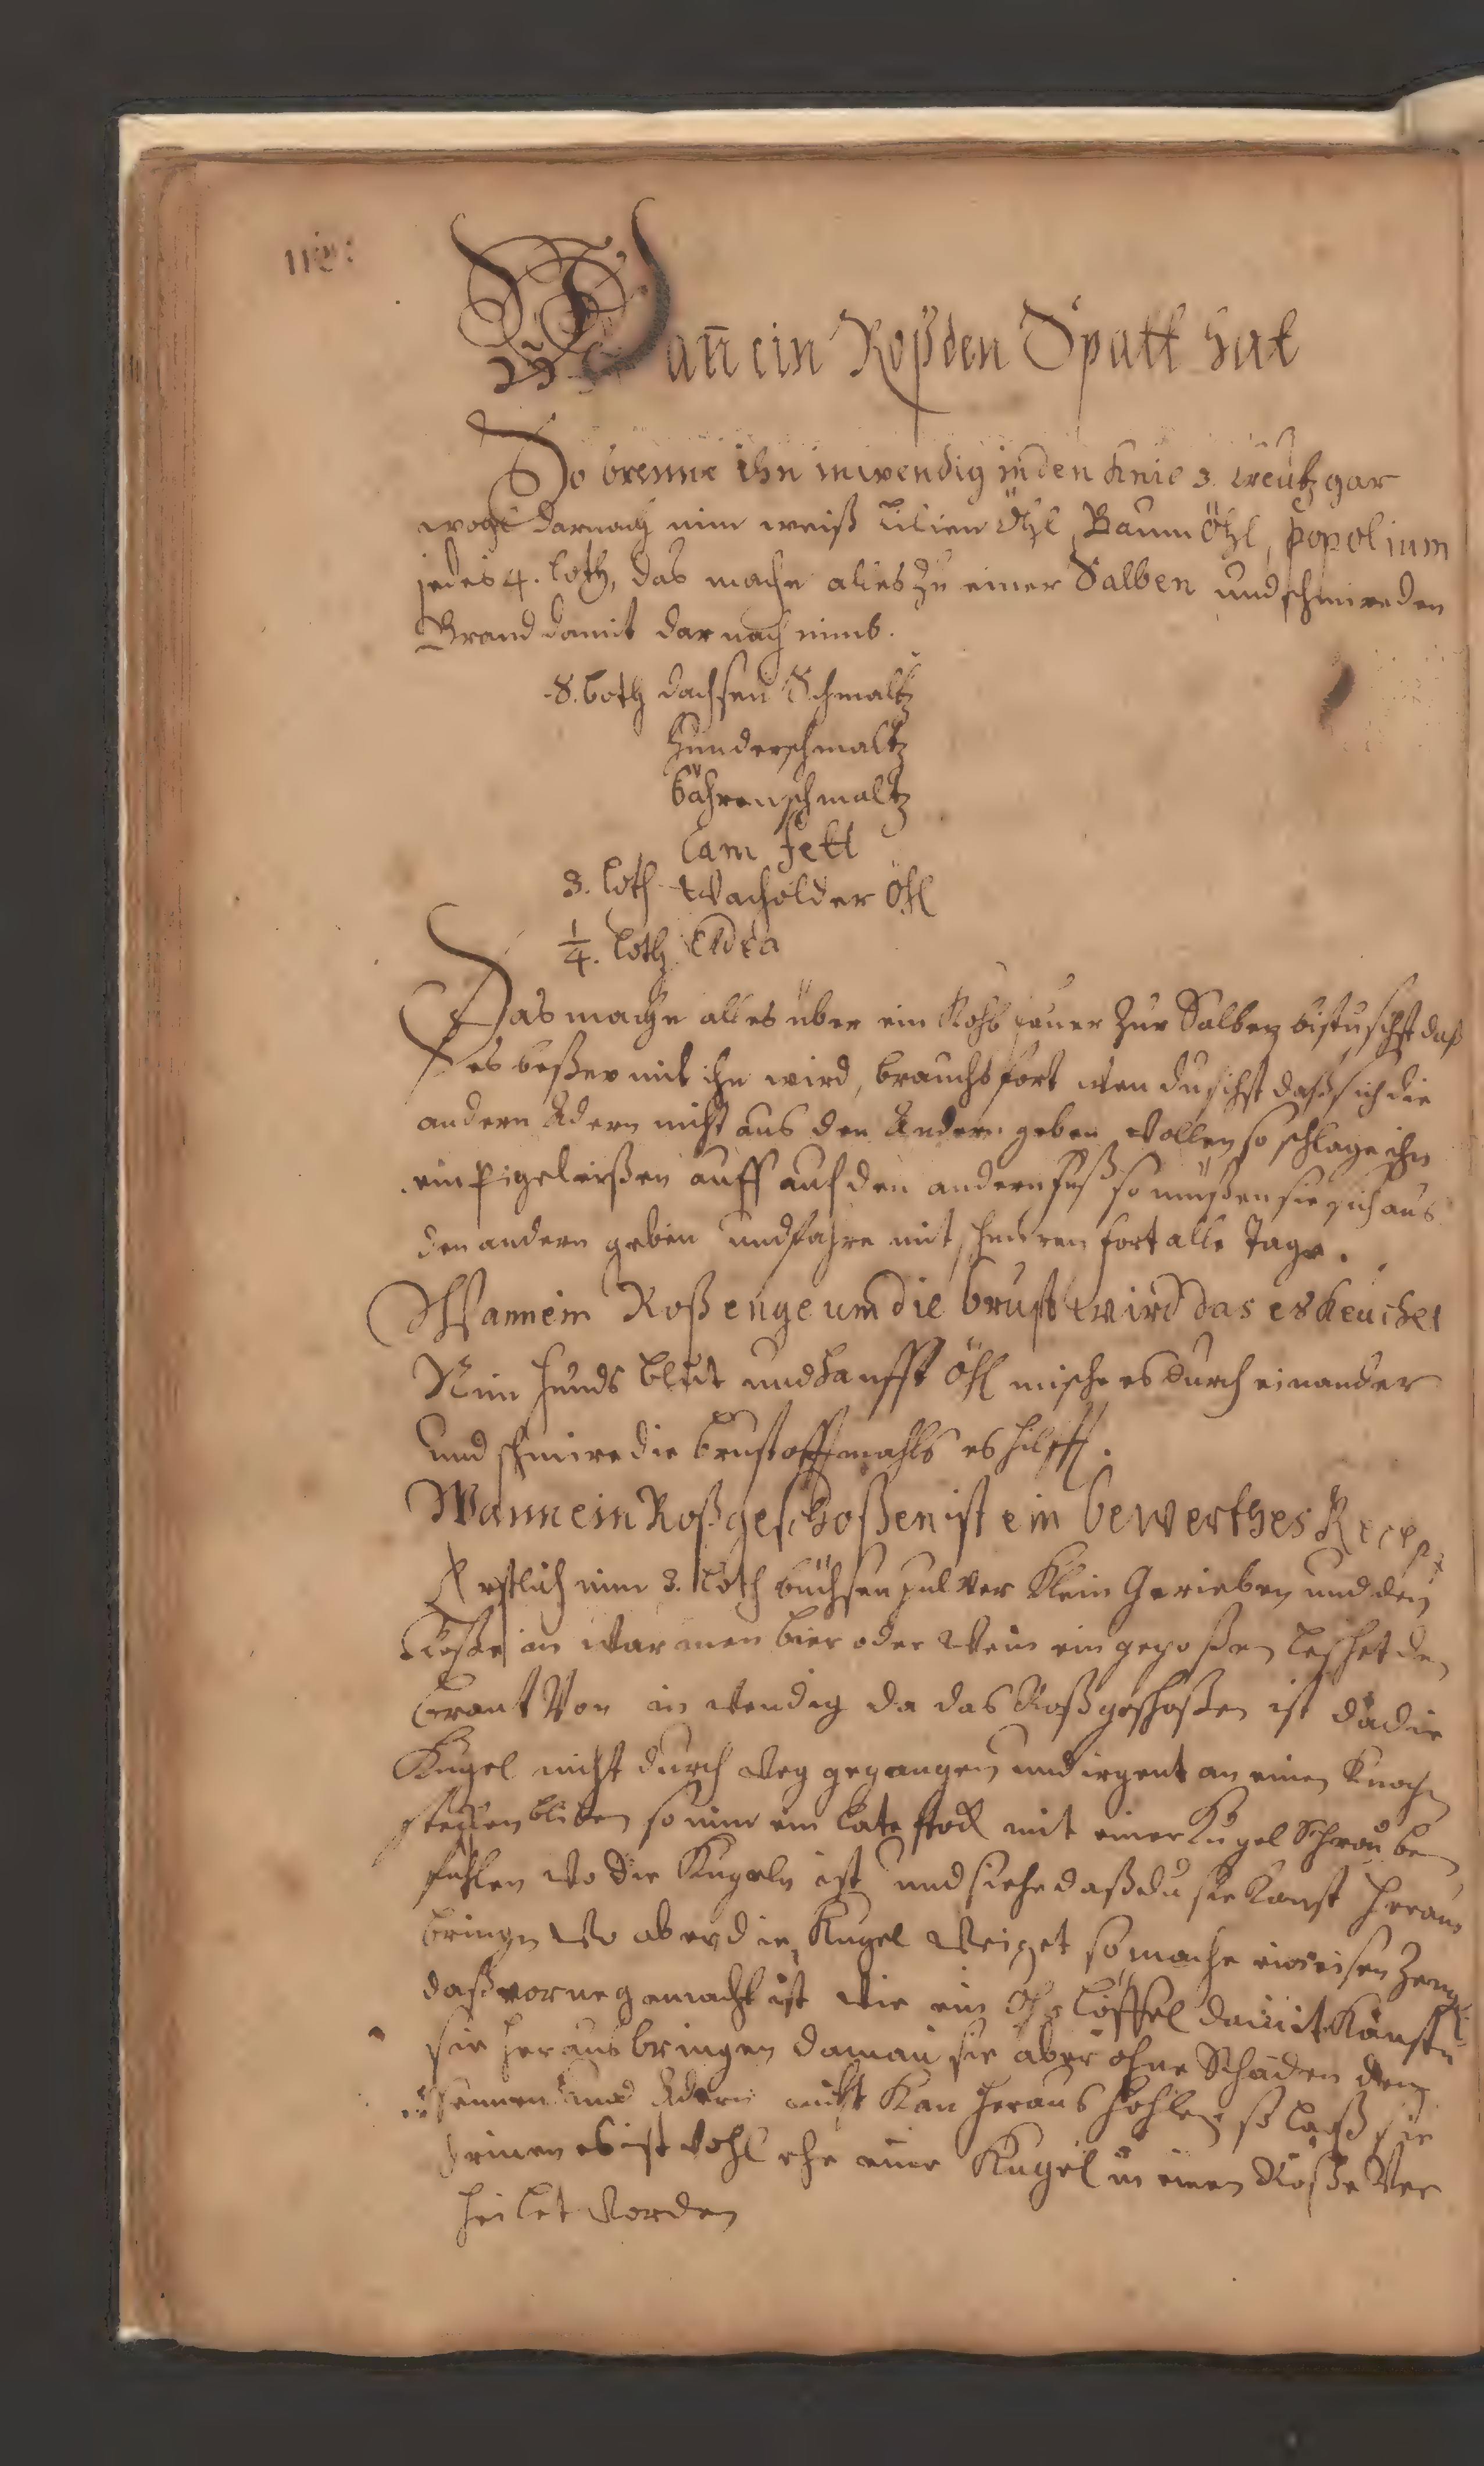 Wan̄ ein Roß den Spatt hat
So brenne ihn inwendig in den Knie 3. Creutz gar
wohl darnach nim weiß Lilien Öhl, Baum Öhl, popolium
jedes 4. loth, das mache alles zu einer Salben und schmire den
Brand damit darnach nimb.
8. Loth dachsen Schmaltz
Hunderschmaltz
bährenschmaltz
Cam fett
3. loth Wacholder Öhl
1/4. loth
Das mache alles über ein Kohl feuer zur Salben bistu sihst daß
es beßer mit ihn wird, brauchs fort wen du sihst daß sich die
andern Adern nicht aus den Andern geben wollen so schlage ihn
ein Eißen auff auf den andern fuß so müßen sie sich aus
den andern geben und fahre mit schmiren fort alle Tage.
Wann ein Roß enge um die brust wird das es Keuchet
Nim Hunds blut und Hanfft öhl mische es durch einander
und schmire die brust offtmahls es hilfft.
Wann ein Roß geschoßen ist ein bewerthes Recept
Erstlich nim 3. Loth büchsen pulver klein Gerieben und den
Roße in warmen bier oder Wein ein gegoßen leschet den
brant Von in wendig da das Roß geschoßen ist da die
Kugel nicht durch weg gegangen und irgent an einen Knochen
stecken bliben so nim ein late stock mit einer Kugel Schrauben
fühlen wo die Kugeln ist und siehe daß du sie kanst heraus
bringen wo aber die Kugel weichet so mache ein eisen Zeug
daß vorne gemacht ist wie ein Ohr Löffel damit Kanstu
sie heraus bringen da man sie aber ohne Schaden den
Sennen und Adern nicht Kan heraus hohlen so laß sie
drinnen es ist wohl ehe eine Kugel in einen Roße Ver
heilet worden